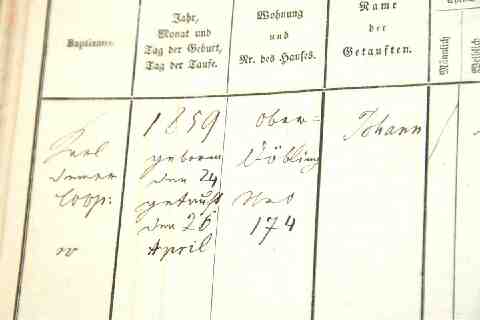 Baptizans.
Jahr,
Monat und
Tag der Geburt,
Tag der Taufe.
Wohnung
und
Nr. des Hauses.
Name
der
Getauften.
Männlich
Weiblich
Karl
Coop:
1859
geboren
den 24
getauft
den 26
April
Ober=
Döbling
Nro
174
Johann